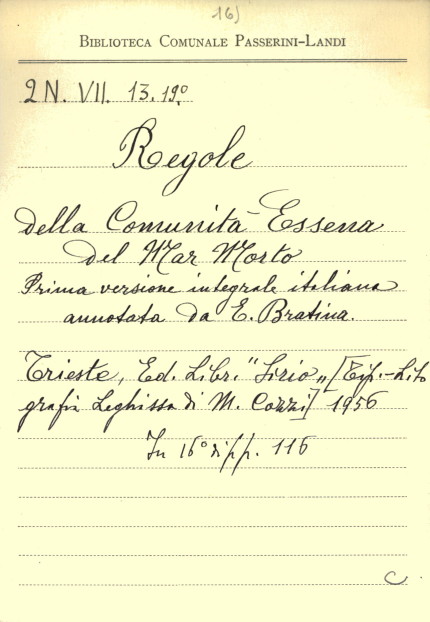 16)
BIBLIOTECA COMUNALE PASSERINI-LANDI
2 N. VII. 13. 19º
Regole
della Comunità Essena
del Mar Morto
Prima versione integrale italiana
annotata da E. Bratina.
Trieste, Ed. Libr. "Sirio„ [Tip.-Lito
grafia Leghissa di M. Cozzi] 1956
In 16º di pp. 116
C